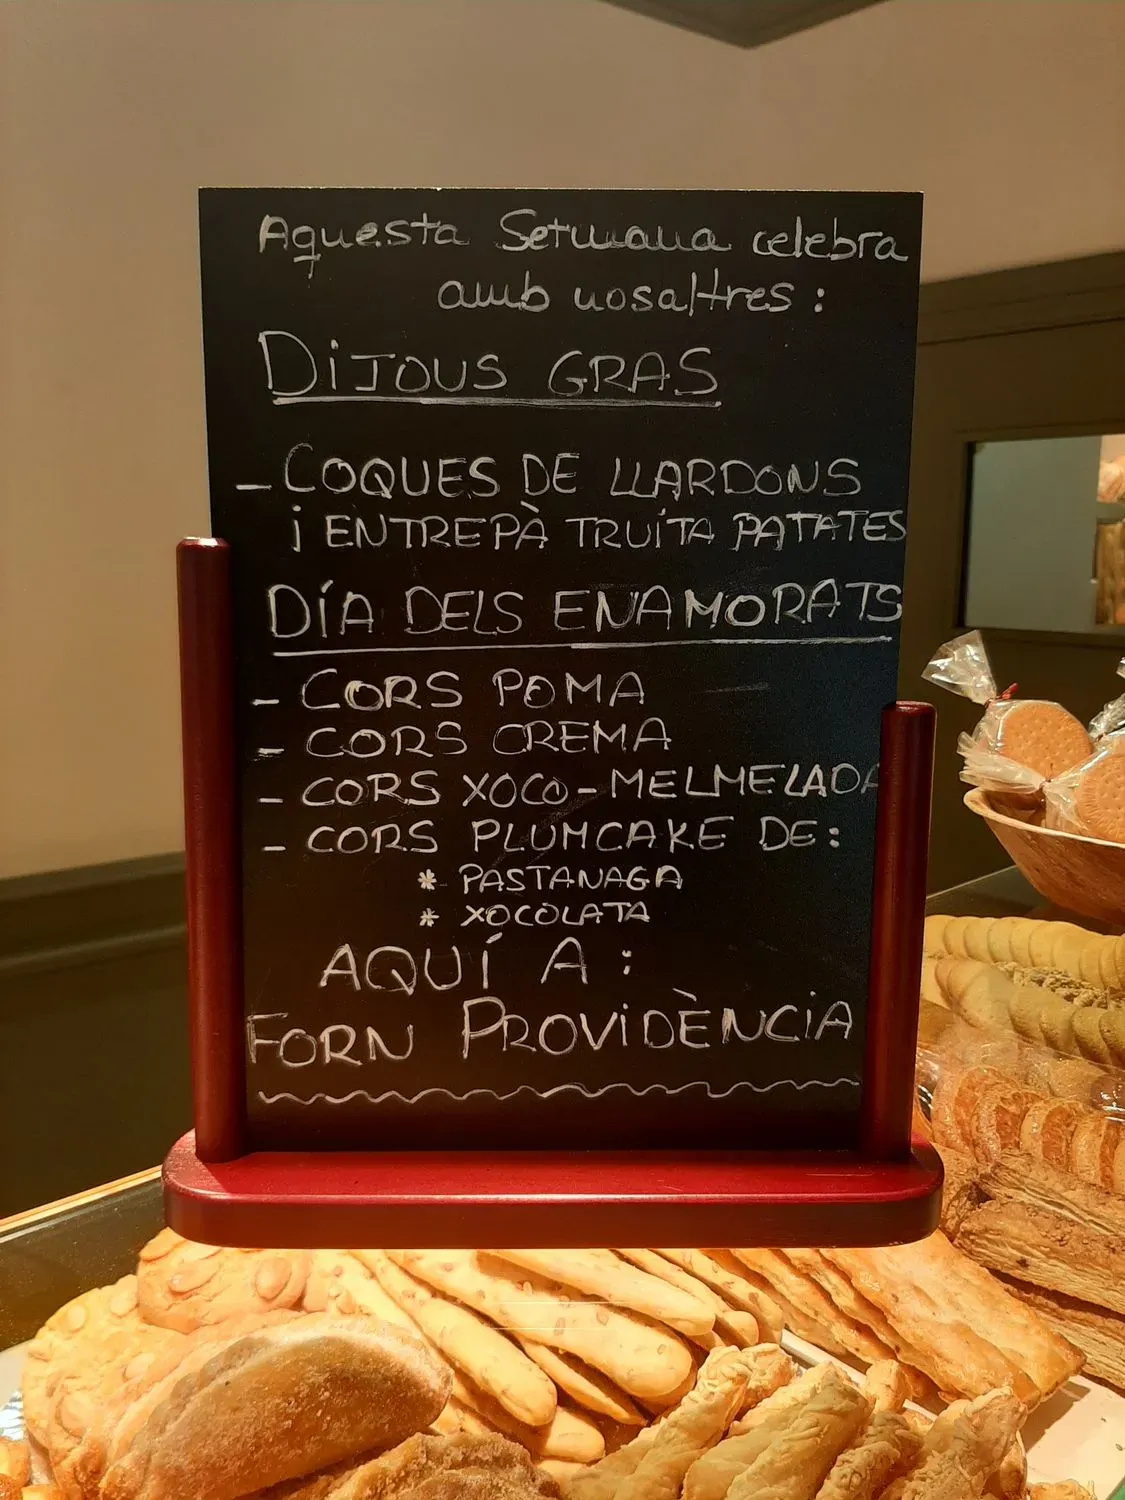 Aquesta Setmana celebra
amb nosaltres:
DiJOUS GRAS
- COQUES DE LLARDONS
i ENTREPÀ TRUÍTA PATATES
DÍA DELS ENAMORATS
- CORS POMA
- CORS CREMA
- CORS XOCO-MELMELADA
- CORS PLUMCAKE DE:
* PASTANAGA
* XOCOLATA
AQUÍ A:
FORN PROViDÈNCiA